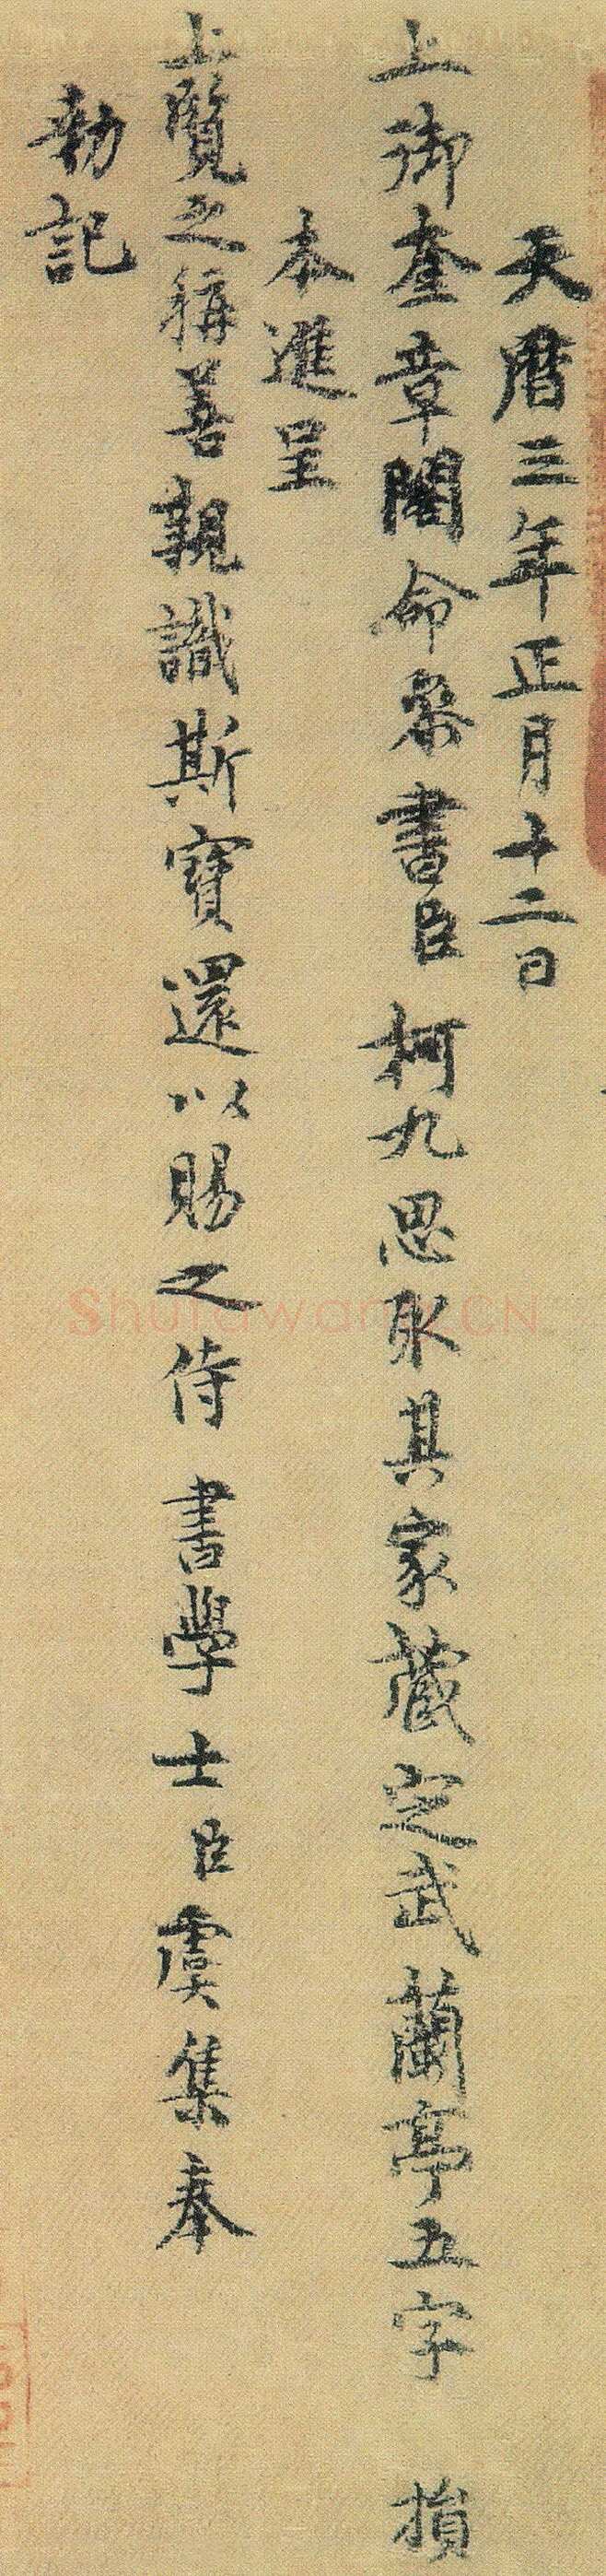 天曆三年正月十二日
上御奎章閣命參書臣柯九思取其家藏定武蘭亭五字損
本進呈
上覽之稱善親識斯寶還以賜之侍書學士臣虞集奉
勅記
Shufawang.CN